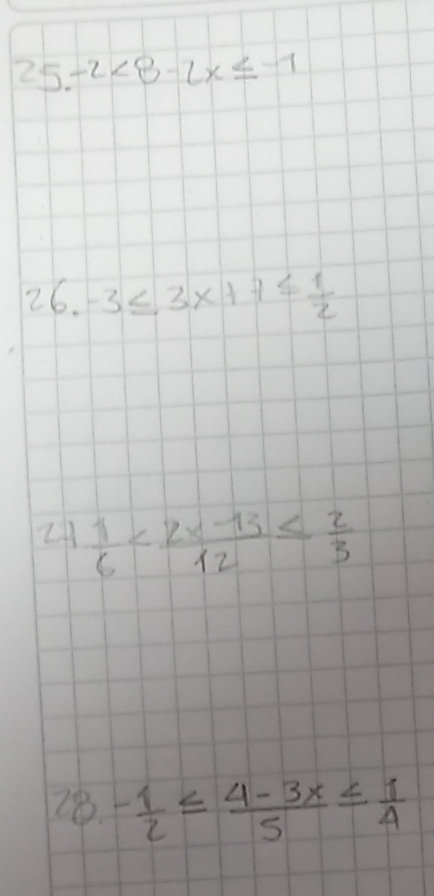 25. -2 < 8 - 2x ≤ -1
26. -3 ≤ 3x + 7 ≤ 1/2
27 1/6 < 2x - 13/12 ≤ 2/3
28. -1/2 ≤ 4 - 3x/5 ≤ 1/4